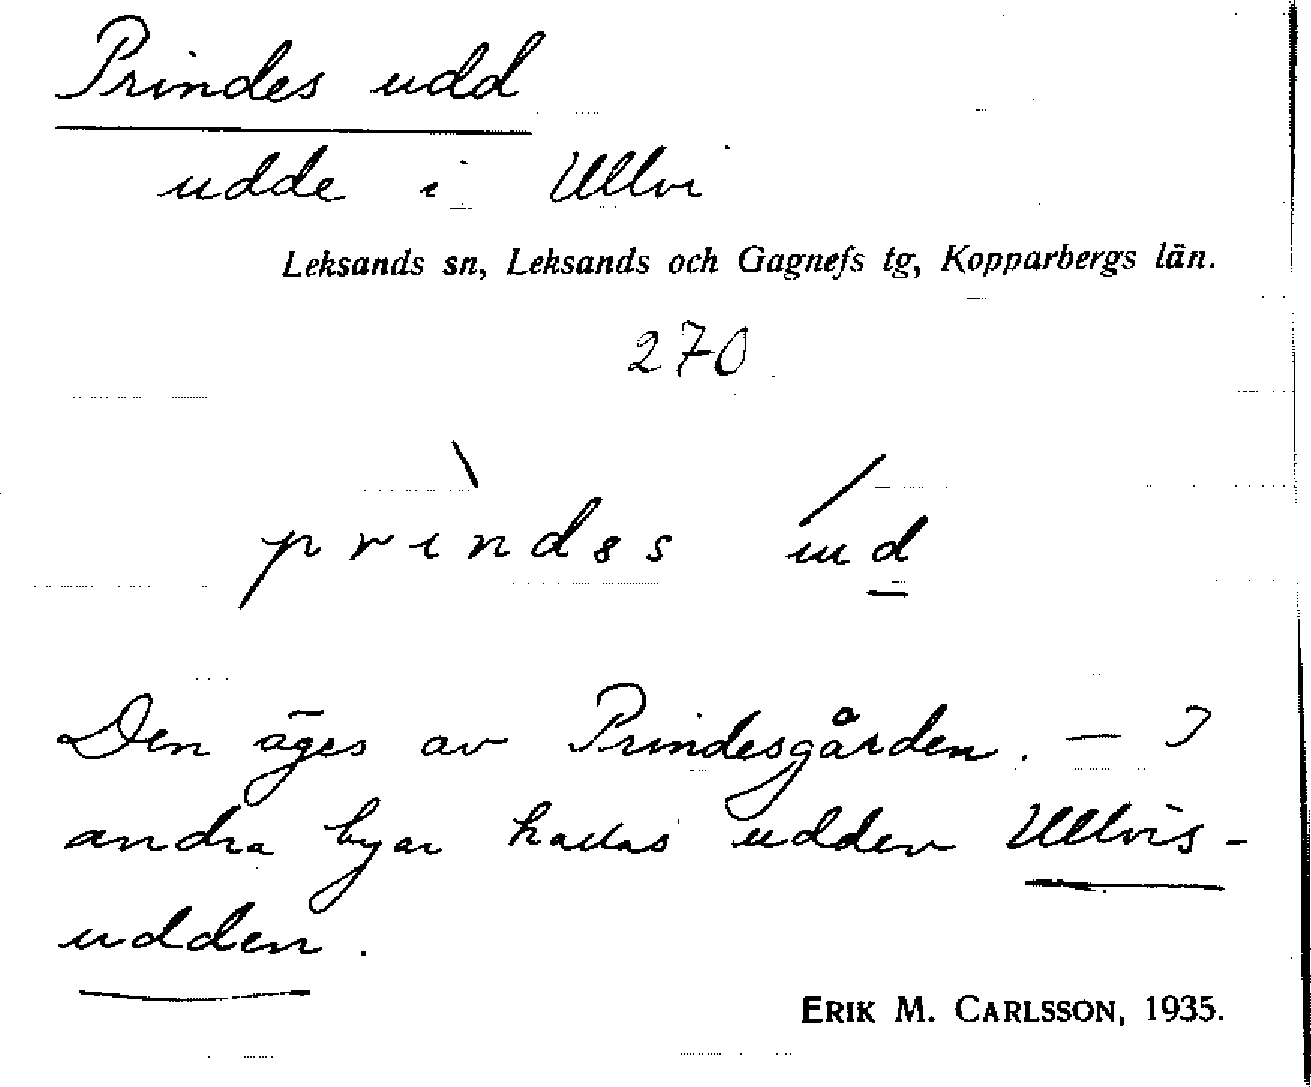 Prindes udd
udde i Ullvi
Leksands sn, Leksands och Gagnefs tg, Kopparbergs län.
270
prìndəs úd̲
Den äges av Prindesgården. — I
andra byar kallas udden Ullvis-
udden.
ERIK M. CARLSSON, 1935.